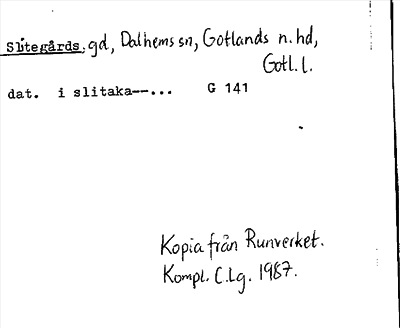 Slitegårds, gd, Dalhems sn, Gotlands n. hd,
Gotl. l.
dat. i slitaka--... G 141
Kopia från Runverket.
Kompl. C.Lg. 1987.